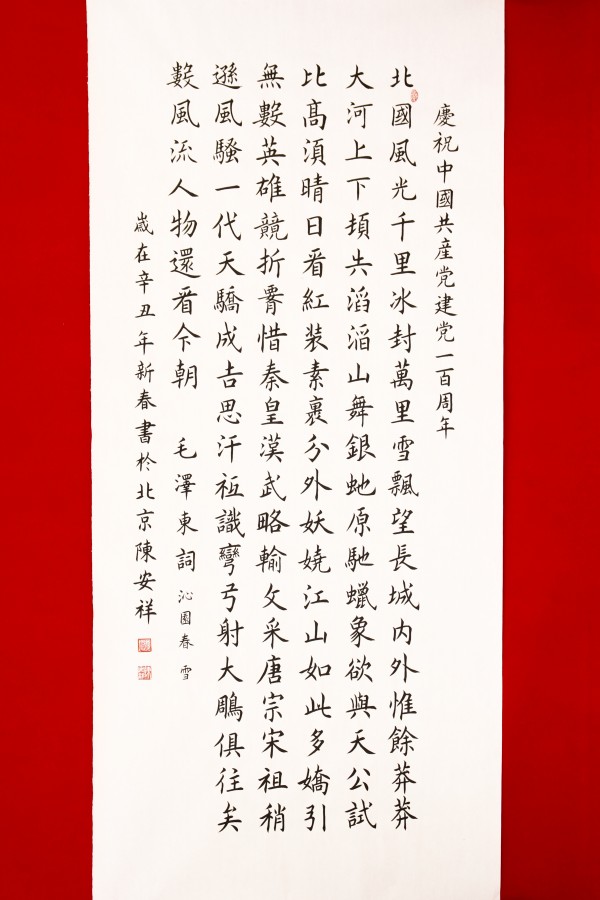 慶祝中國共産党建党一百周年
北國風光千里冰封萬里雪飄望長城内外惟餘莽莽
大河上下頓失滔滔山舞銀虵原馳蠟象欲與天公試
比髙須晴日看紅装素裹分外妖嬈江山如此多嬌引
無數英雄競折腰惜秦皇漢武略輸文采唐宗宋祖稍
遜風騷一代天驕成吉思汗祗識彎弓射大鵰俱往矣
數風流人物還看今朝 毛澤東詞 沁園春 雪
歲在辛丑年新春書於北京陳安祥